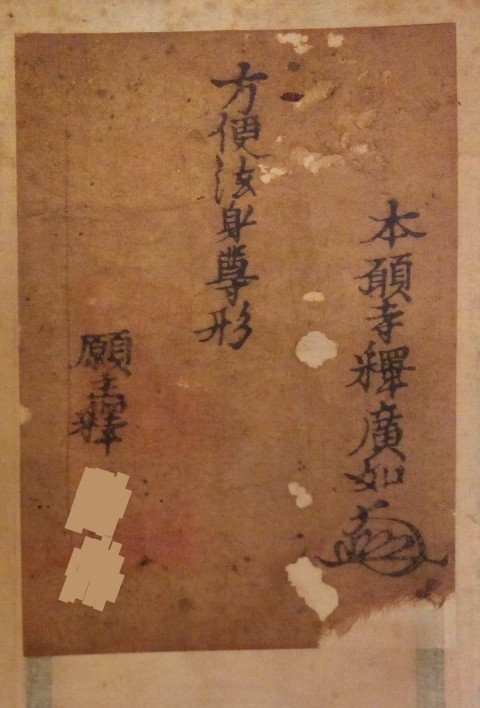 本願寺釋廣如
方便法身尊形
願主釋